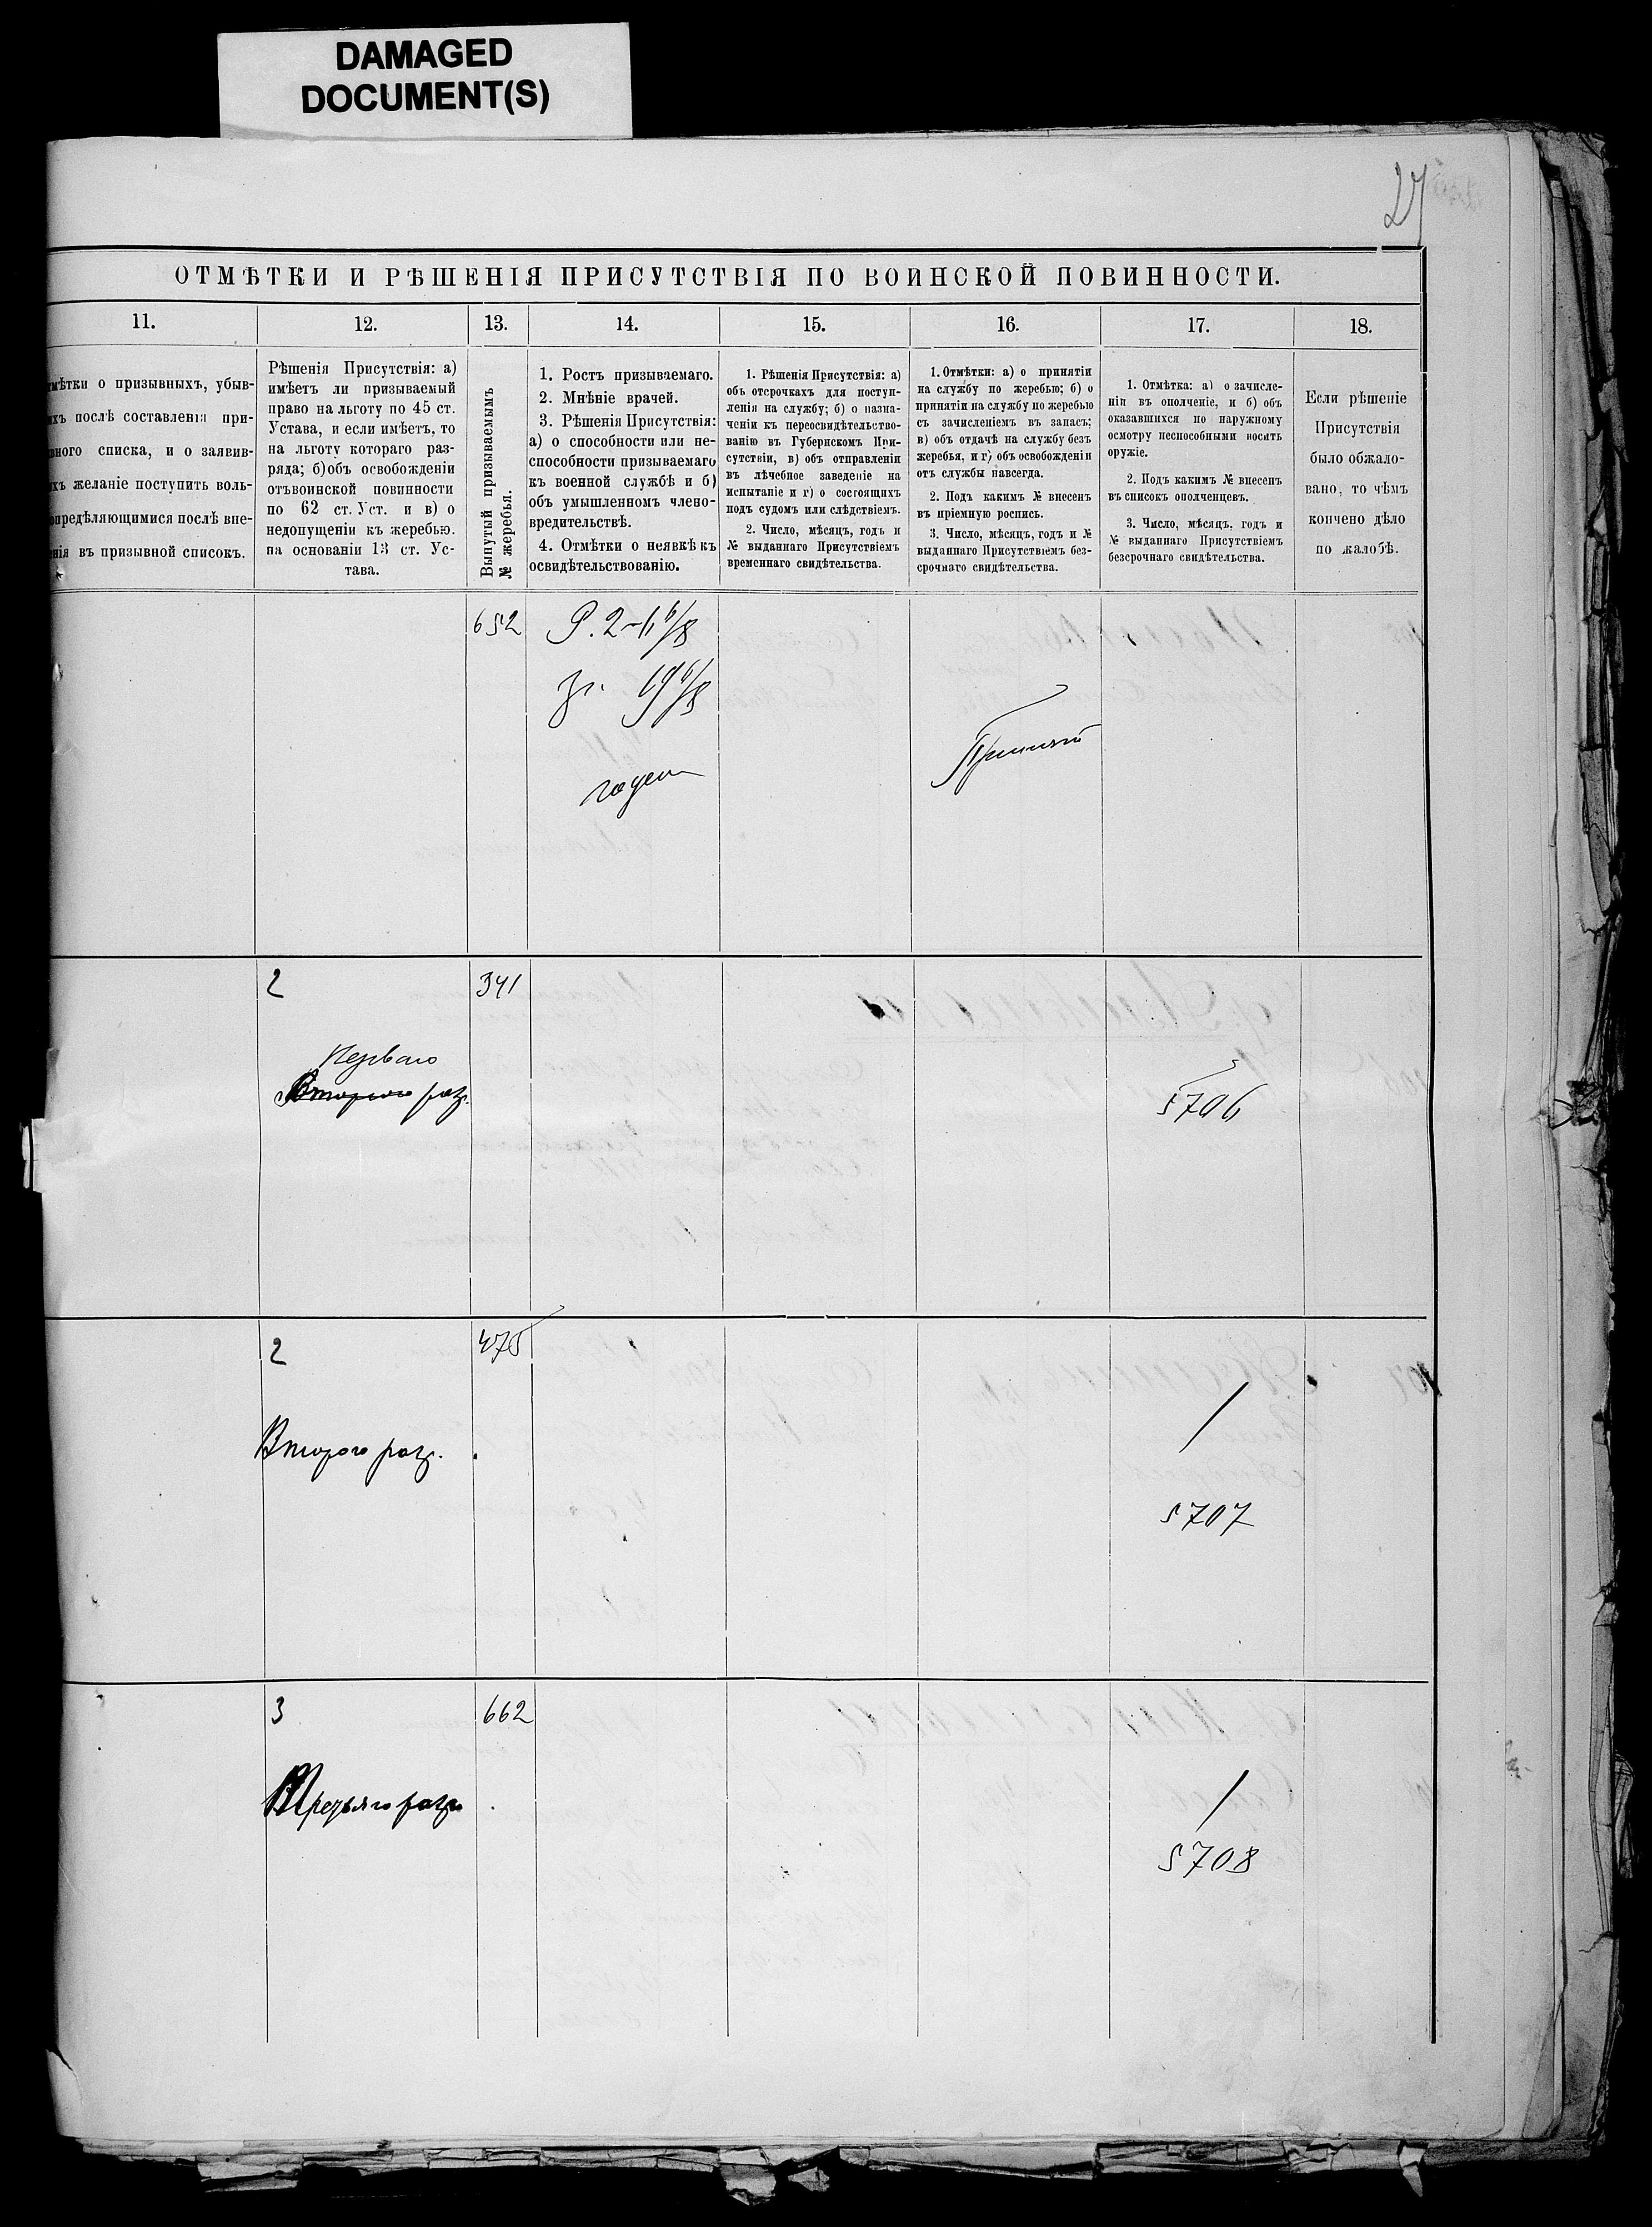 DAMAGED
DOCUMENT(S)
27
ОТМѢТКИ И РѢШЕНІЯ ПРИСУТСТВІЯ ПО ВОИНСКОЙ ПОВИННОСТИ.
11.
12.
13.
14.
15.
16.
17.
18.
мѣтки о призывныхъ, убыв-
ихъ послѣ составленія при-
вного списка, и о заявив-
ихъ желаніе поступить воль-
опредѣляющимися послѣ вне-
енія въ призывной списокъ.
Рѣшенія Присутствія: а)
имѣетъ ли призываемый
право на льготу по 45 ст.
Устава, и если имѣетъ, то
на льготу котораго раз-
ряда; б) объ освобожденіи
отъ воинской повинности
по 62 ст. Уст. и в) о
недопущеніи къ жеребью.
на основаніи 13 ст. Ус-
тава.
Вынутый призываемымъ
№ жеребья.
1. Ростъ призываемаго.
2. Мнѣніе врачей.
3. Рѣшенія Присутствія:
а) о способности или не-
способности призываемаго
къ военной службѣ и б)
объ умышленномъ члено-
вредительствѣ.
4. Отмѣтки о неявкѣ къ
освидѣтельствованію.
1. Рѣшенія Присутствія: а)
объ отсрочкахъ для поступ-
ленія на службу; б) о назна-
ченіи къ переосвидѣтельство-
ванію въ Губернскомъ При-
сутствіи, в) объ отправленіи
въ лѣчебное заведеніе на
испытаніе и г) о состоящихъ
подъ судомъ или слѣдствіемъ.
2. Число, мѣсяцъ, годъ и
№ выданнаго Присутствіемъ
временнаго свидѣтельства.
1. Отмѣтки: а) о принятіи
на службу по жеребью; б) о
принятіи на службу по жеребью
съ зачисленіемъ въ запасъ;
в) объ отдачѣ на службу безъ
жеребья, и г) объ освобожденіи
отъ службы навсегда.
2. Подъ какимъ № внесенъ
въ пріемную роспись.
3. Число, мѣсяцъ, годъ и №
выданнаго Присутствіемъ без-
срочнаго свидѣтельства.
1. Отмѣтка: а) о зачисле-
ніи въ ополченіе, и б) объ
оказавшихся по наружному
осмотру неспособными носить
оружіе.
2. Подъ какимъ № внесенъ
въ списокъ ополченцевъ.
3. Число, мѣсяцъ, годъ и
№ выданнаго Присутствіемъ
безсрочнаго свидѣтельства.
Если рѣшеніе
Присутствія
было обжало-
вано, то чѣмъ
кончено дѣло
по жалобѣ.
652
Р. 2-1 6/8
19 6/8
годен
Принятъ
2
341
Перваго
Второго разр.
5706
2
475
Второго разр.
5707
3
662
Третьяго разр
5708